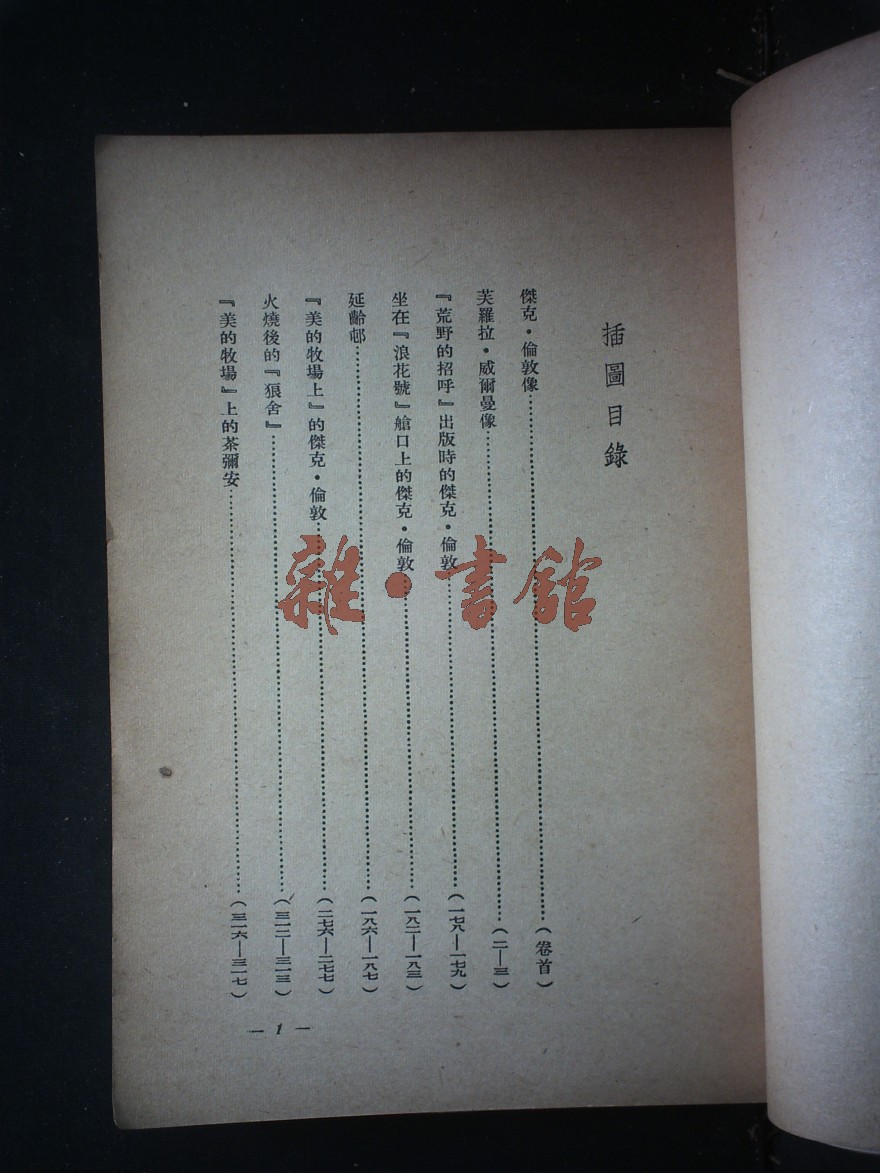 插圖目錄
傑克·倫敦像……(卷首)
芙羅拉·威爾曼像……(二—三)
『荒野的招呼』出版時的傑克·倫敦……(一七八—一七九)
坐在『浪花號』艙口上的傑克·倫敦……(一八二—一八三)
延齡邨……(一八六—一八七)
『美的牧場上』的傑克·倫敦……(二七六—二七七)
火燒後的『狼舍』……(三一二—三一三)
『美的牧場』上的茶彌安……(三一六—三一七)
— 1 —
雜·書館